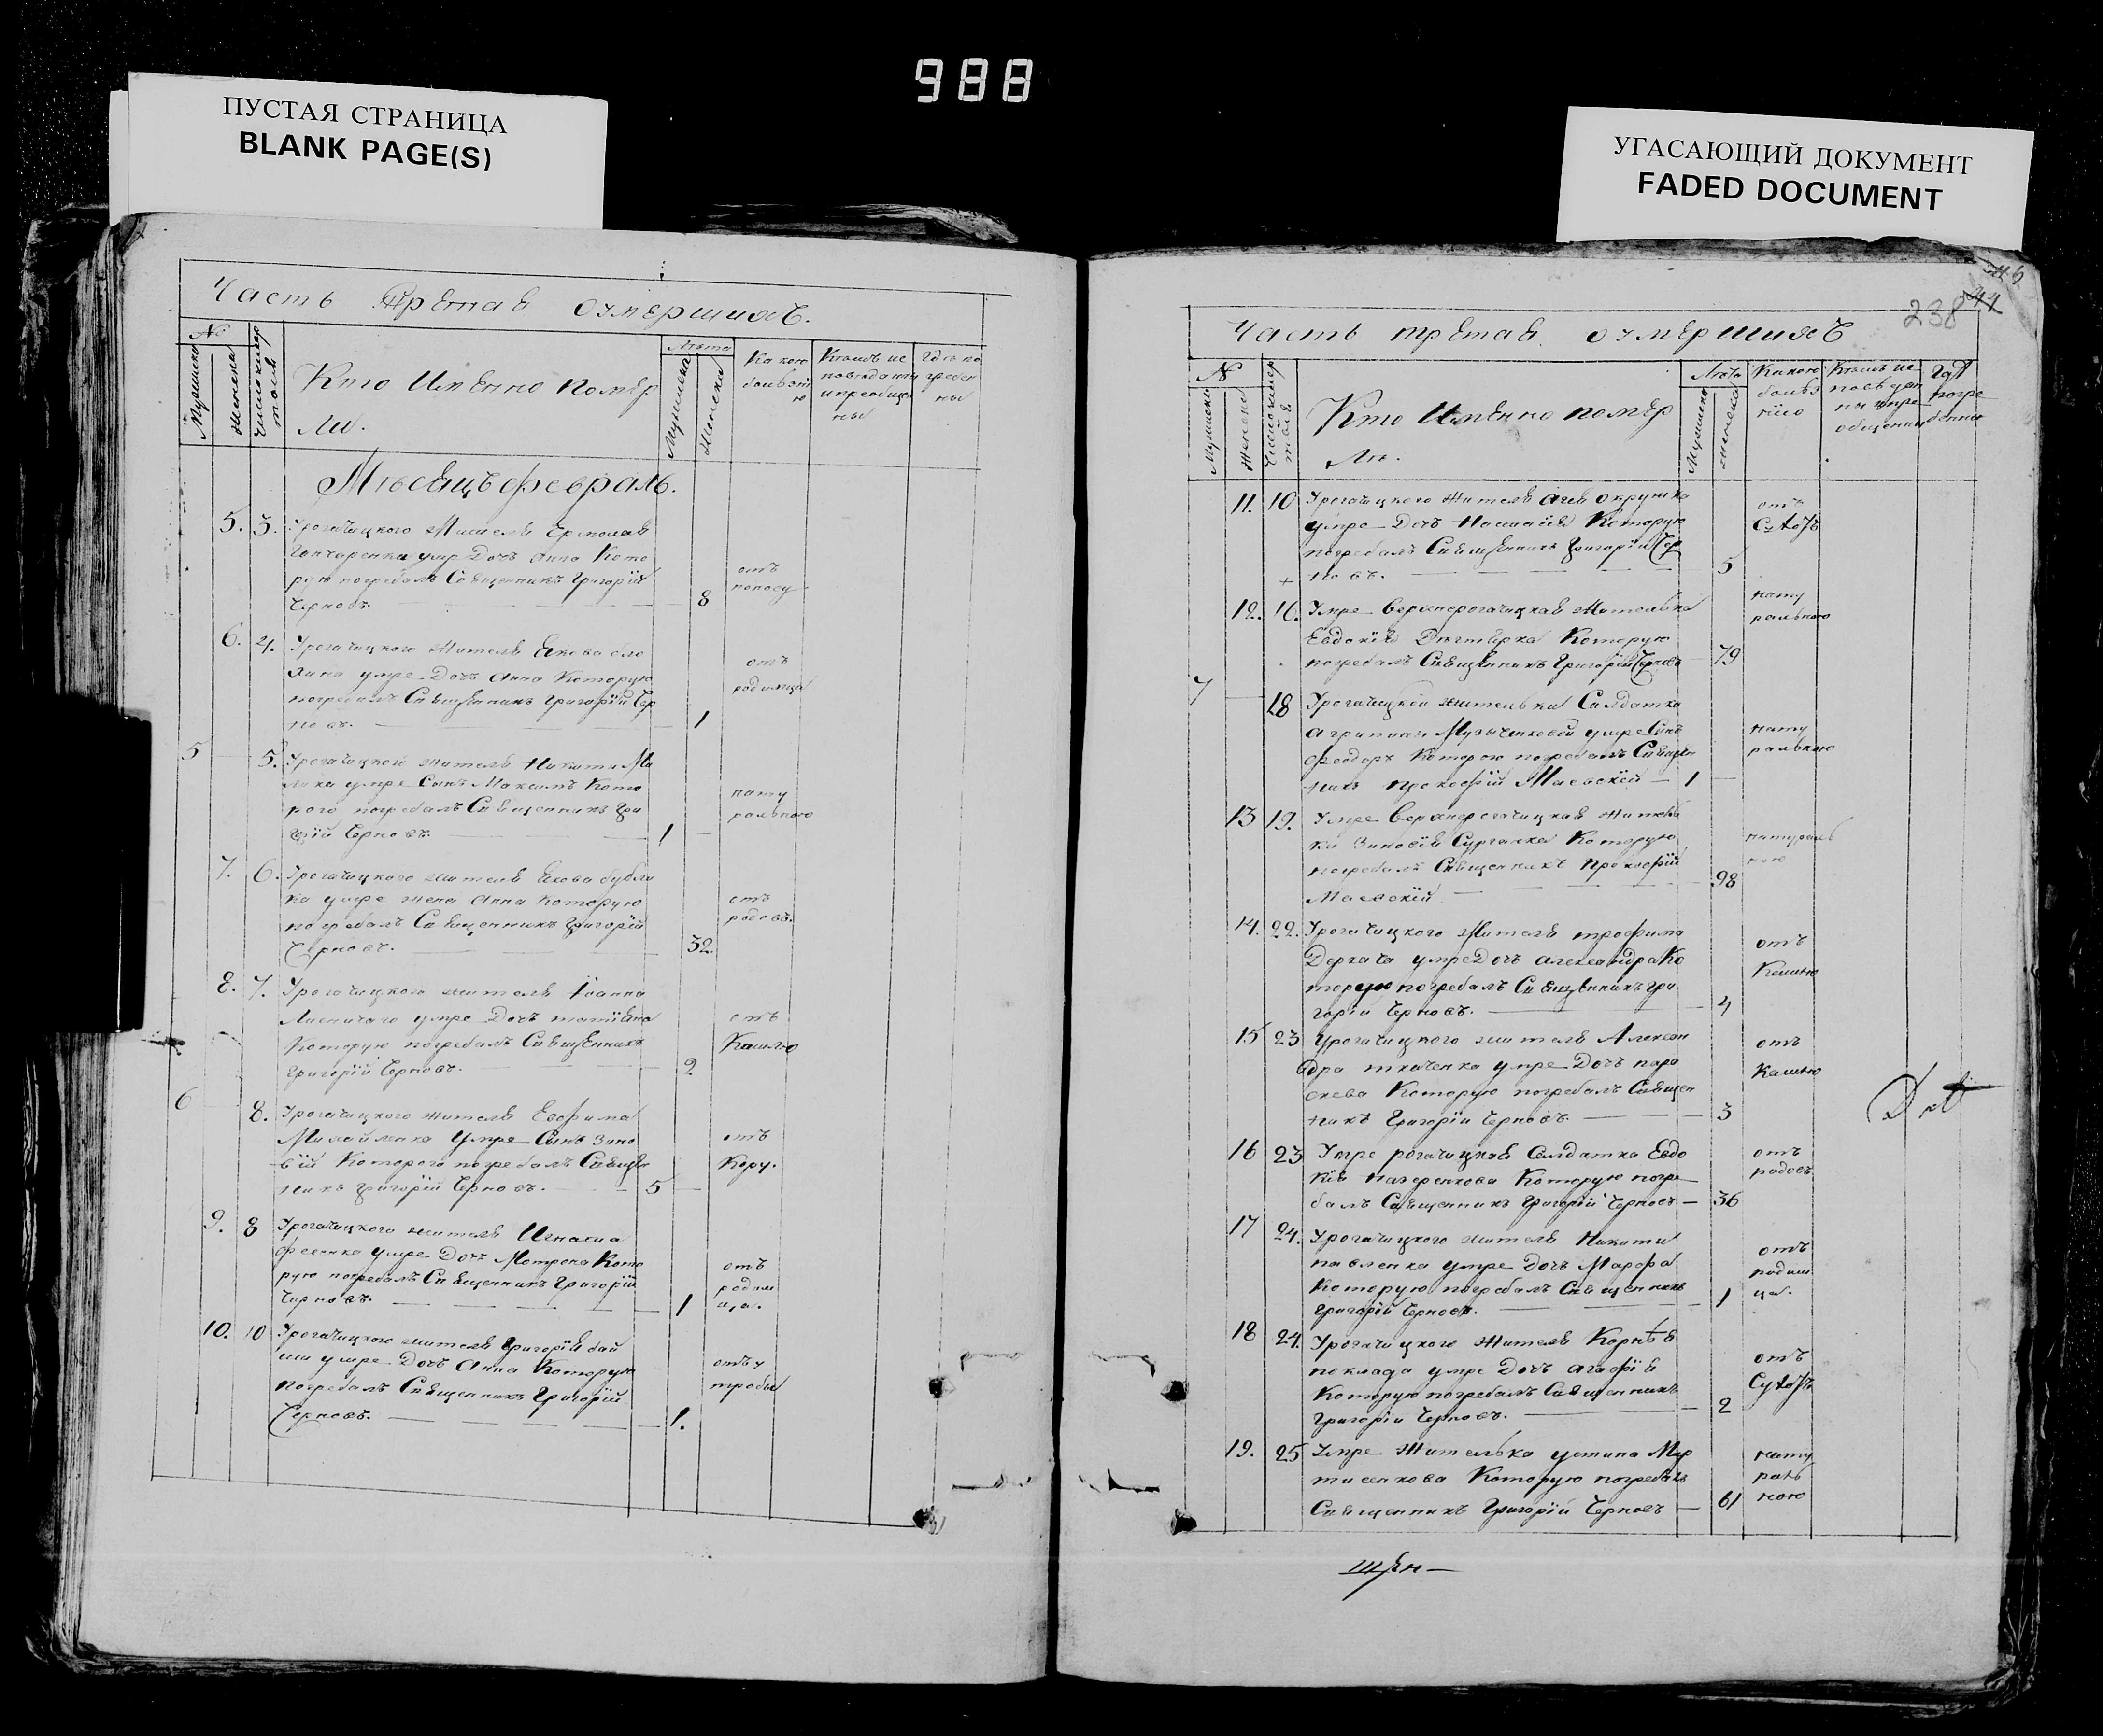 988
ПУСТАЯ СТРАНИЦА
BLANK PAGE(S)
УГАСАЮЩИЙ ДОКУМЕНТ
FADED DOCUMENT
Часть Третая оумершихъ.
№
Лѣта
Мужеска
Женска
Кто Именно помер
ли.
Мужеска
Женска
Какою
Мѣсяцъ февраль.
5. 3. Урогачицкого Жителя Ермолая
Гончаренка умре Дочъ Анна Кото
рую погребалъ Священникъ Григорій
Черновъ. 8
отъ
поносу
6. 4. Урогачицкого Жителя Якова
умре Дочъ Анна Которую
погребалъ Священникъ Григорій Чер
новъ. 1
отъ
родимца
5 5. Урогачицкого жителя Никиты
умре Сынъ Максимъ Кото
рого погребалъ Священникъ Гри
горій Черновъ. 1
нату
рального
7. 6. Урогачицкого жителя Якова
ка умре жена Анна Которую
погребалъ Священникъ Григорій
Черновъ. 32.
отъ
родовъ.
8. 7. Урогачицкого жителя Іоанна
Лисичаго умре Дочъ татіяна
Которую погребалъ Священникъ
Григорій Черновъ. 2
отъ
Кашлю
6 8. Урогачицкого жителя Евфима
Михайленка Умре Сынъ Зино
вій Которого погребалъ Священ
никъ Григорій Черновъ. 5
отъ
Кору.
9. 8 Урогачицкого жителя Игната
умре Дочъ Мотрона Кото
рую погребалъ Священникъ Григорій
Черновъ. 1
отъ
родим
ца.
10. 10 Урогачицкого жителя Григорія бай
ши умре Дочъ Анна Которую
погребалъ Священникъ Григорій
Черновъ. 1.
отъ у
тробы
238
Часть третая оумершихъ
№
Лѣта
Мужеска
Женска
Кто Именно помер
ли.
Мужеска
Женска
11. 10 Урогачицкого Жителя
умре Дочъ Которую
погребалъ Священникъ Григорій Чер
новъ. 5
отъ
12. 16. Умре Верхнерогачицкая Жителька
Евдокія Дегтярка Которую
погребалъ Священникъ Григорій Черновъ 79
нату
рального
7 18 Урогачицкой жительки Салдатки
Агрипины Музыченковой умре Сынъ
Феодоръ Которого погребалъ Священ
никъ Прокофій Маевскій 1
нату
рального
13 19. Умре Верхнерогачицкая житель
ка Зиновія Сургачка Которую
погребалъ Священникъ Прокофій
Маевскій 98
натураль
ною
14. 22. Урогачицкого Жителя трофима
Деркача умре Дочъ Александра Ко
торую погребалъ Священникъ Гри
горій Черновъ. 4
отъ
Кашлю
15 23 Урогачицкого жителя Алексан
дра ткаченка умре Дочъ пара
скева Которую погребалъ Священ
никъ Григорій Черновъ. 3
отъ
Кашлю
16 23 Умре рогачицкая Салдатка Евдо
кія Которую погре
балъ Священникъ Григорій Черновъ 36
отъ
родовъ
17 24. Урогачицкого жителя Никиты
павленка умре Дочъ Марфа
Которую погребалъ Священникъ
Григорій Черновъ. 1
отъ
родим
ца.
18 24. Урогачицкого жителя Корнѣя
поклада умре Дочъ агафія
Которую погребалъ Священникъ
Григорій Черновъ. 2
отъ
19. 25 Умре Жителька устина Мар
тисенкова Которую погребалъ
Священникъ Григорій Черновъ 61
нату
раль
ною